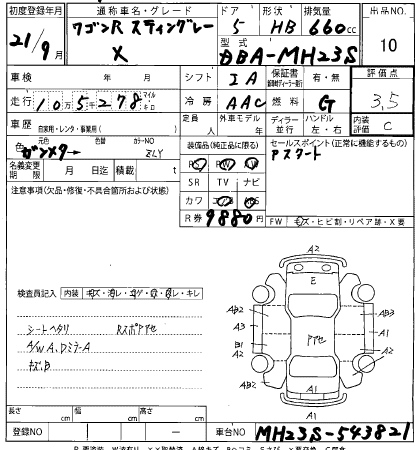 初度登録年月 通称車名・グレード ドア 形状 排気量 出品NO.
21/9月 ワゴンR スティングレー X 5 HB 660cc 10
型式 DBA-MH23S
車検 年 月 シフト IA 保証書 有・無 評価点
走行 10万5千278 マイル キロ 冷房 AAC 燃料 G 3.5
車歴 自家用・レンタ・事業用( ) 定員 人 外車モデル 年 ディーラー 並行 ハンドル 左・右 内装評価 C
色 元色 ガンメタ → 色替 カラーNO ZLY
装備品(純正品に限る) セールスポイント(正常に機能するもの)
名義変更期限 月 日迄 積載 t
アスタート
SR TV ナビ
注意事項(欠品・修復・不具合箇所および状態)
カワ
R券 9880円
FW キズ・ヒビ割・リペア跡・X要交換
検査員記入 内装 キズ・汚レ・コゲ・穴・ヌレ・キレ
シートヘタリ RスポアゲセA/W A、Dミラー A
キズ、B
A2
E
AB2 AB3
A3 A1
B1 アゲセ
A2 A2
A1
A1
長さ cm 幅 cm 高さ cm
登録NO 車台NO MH23S-543821